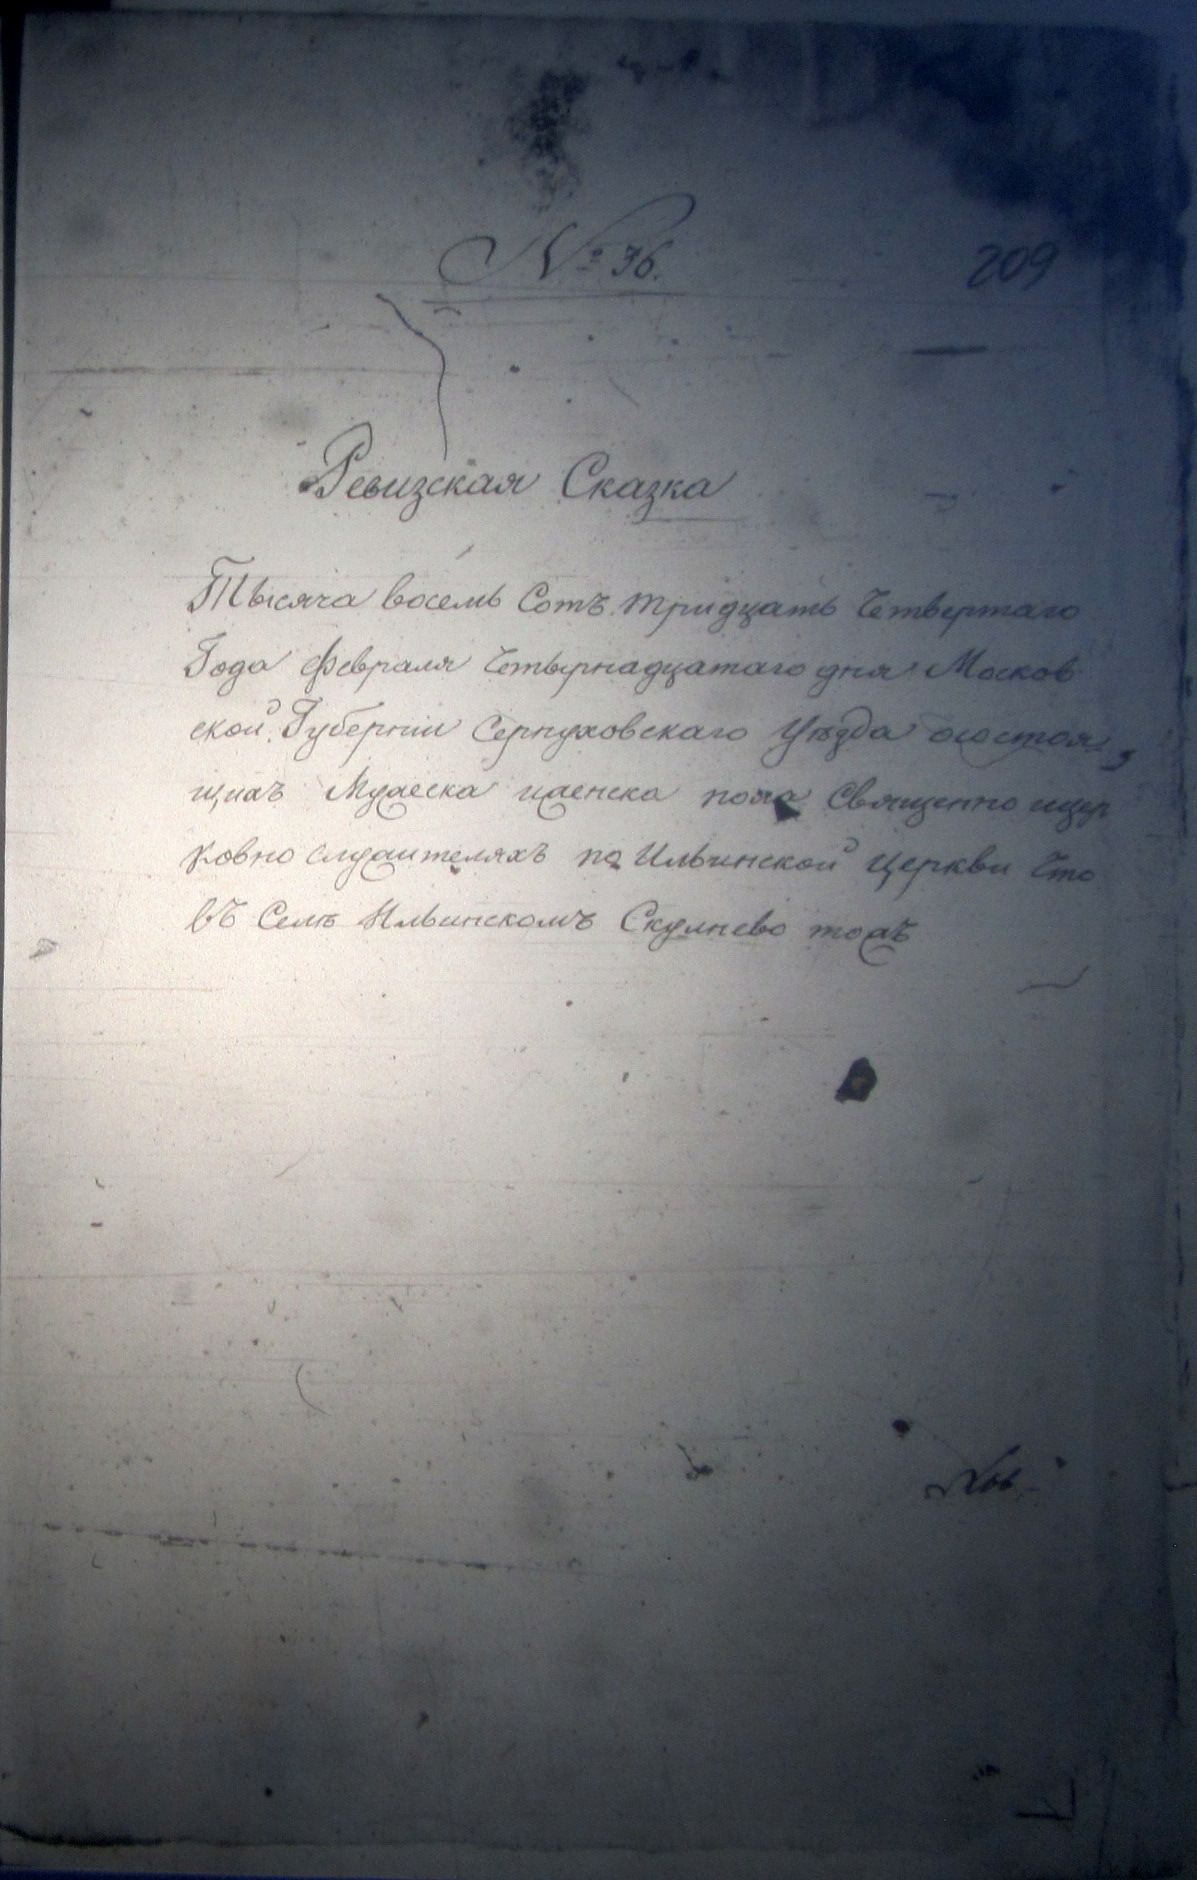 № 36.
209
Ревизская Сказка
Тысяча восемь Сотъ тридцать Четвертаго
Года февраля Четырнадцатаго дня Москов
ской Губерніи Серпуховскаго Уѣзда осостоя
щихъ Мужеска иженска пола Священно ицер
ковно служителяхъ по Ильинской Церкви Что
въ Селѣ Ильинскомъ Скулнево тожъ